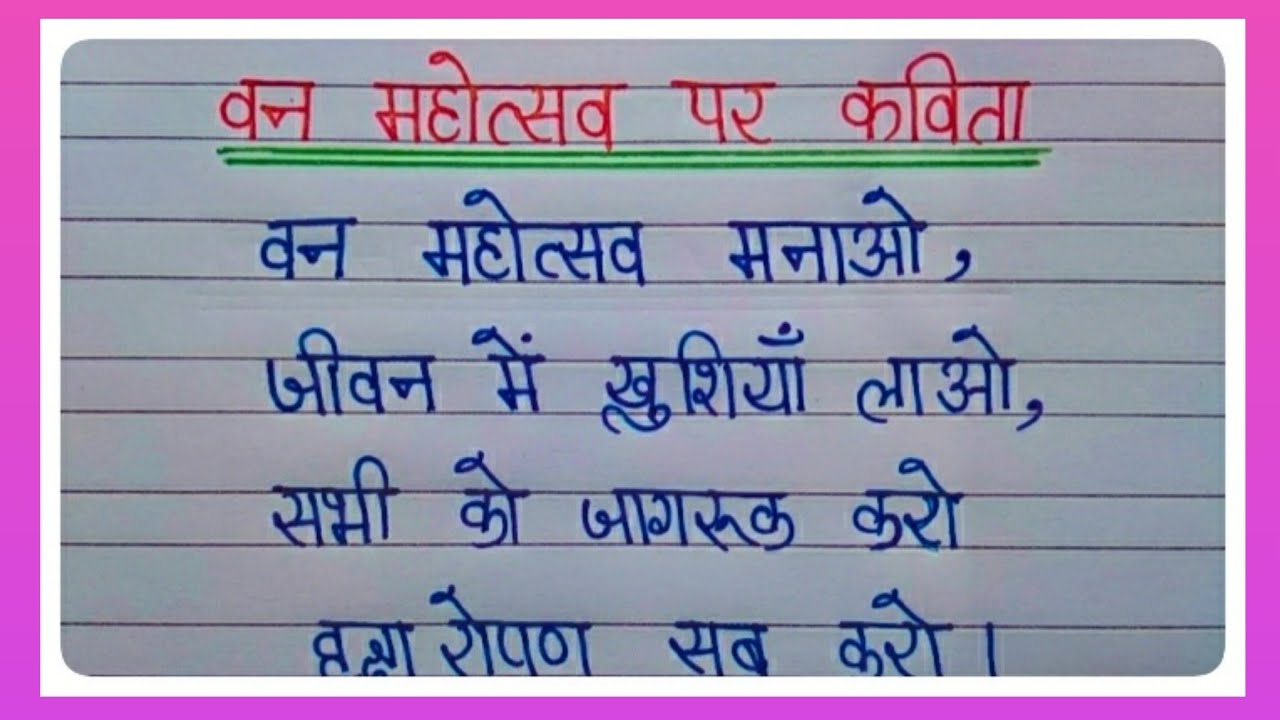 वन महोत्सव पर कविता
वन महोत्सव मनाओ,
जीवन में खुशियाँ लाओ,
सभी को जागरूक करो
वृक्षा रोपण सब करो।